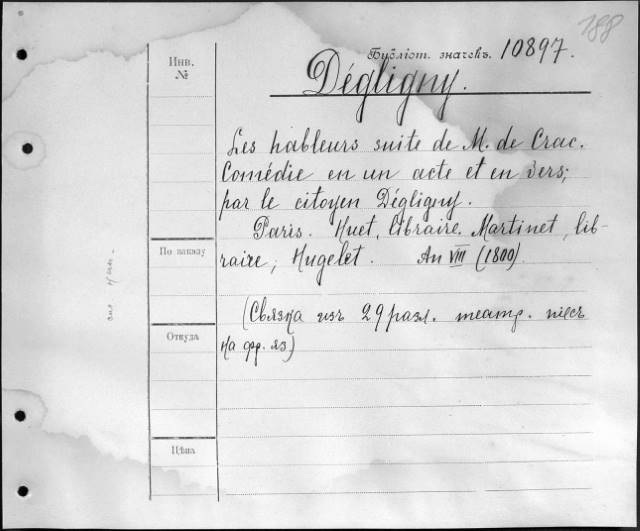 188
Библіот. значекъ. 10897.
Инв.
№
Dégligny.
Les hableurs suite de M. de Crac.
Comédie en un acte et en vers;
par le citoyen Dégligny.
Paris. Huet, libraire, Martinet, lib-
raire, Hugelet. An VIII (1800).
По заказу
(Связка изъ 29 разл. театр. пьесъ
Откуда
на фр. яз)
Цѣна